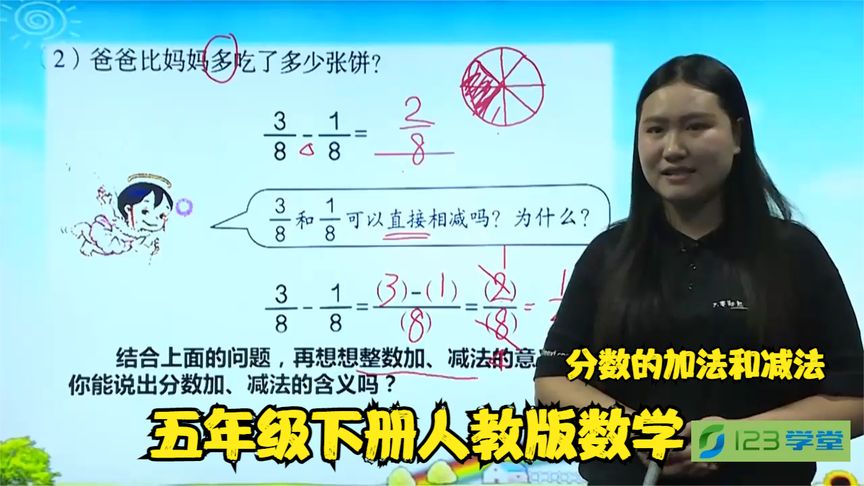 2）爸爸比妈妈多吃了多少张饼？
3/8 - 1/8 = 2/8
3/8 和 1/8 可以直接相减吗？为什么？
3/8 - 1/8 = (3)-(1)/(8) = (2)/(8) = 1
1
4
结合上面的问题，再想想整数加、减法的意
你能说出分数加、减法的含义吗？
分数的加法和减法
五年级下册人教版数学
123学堂